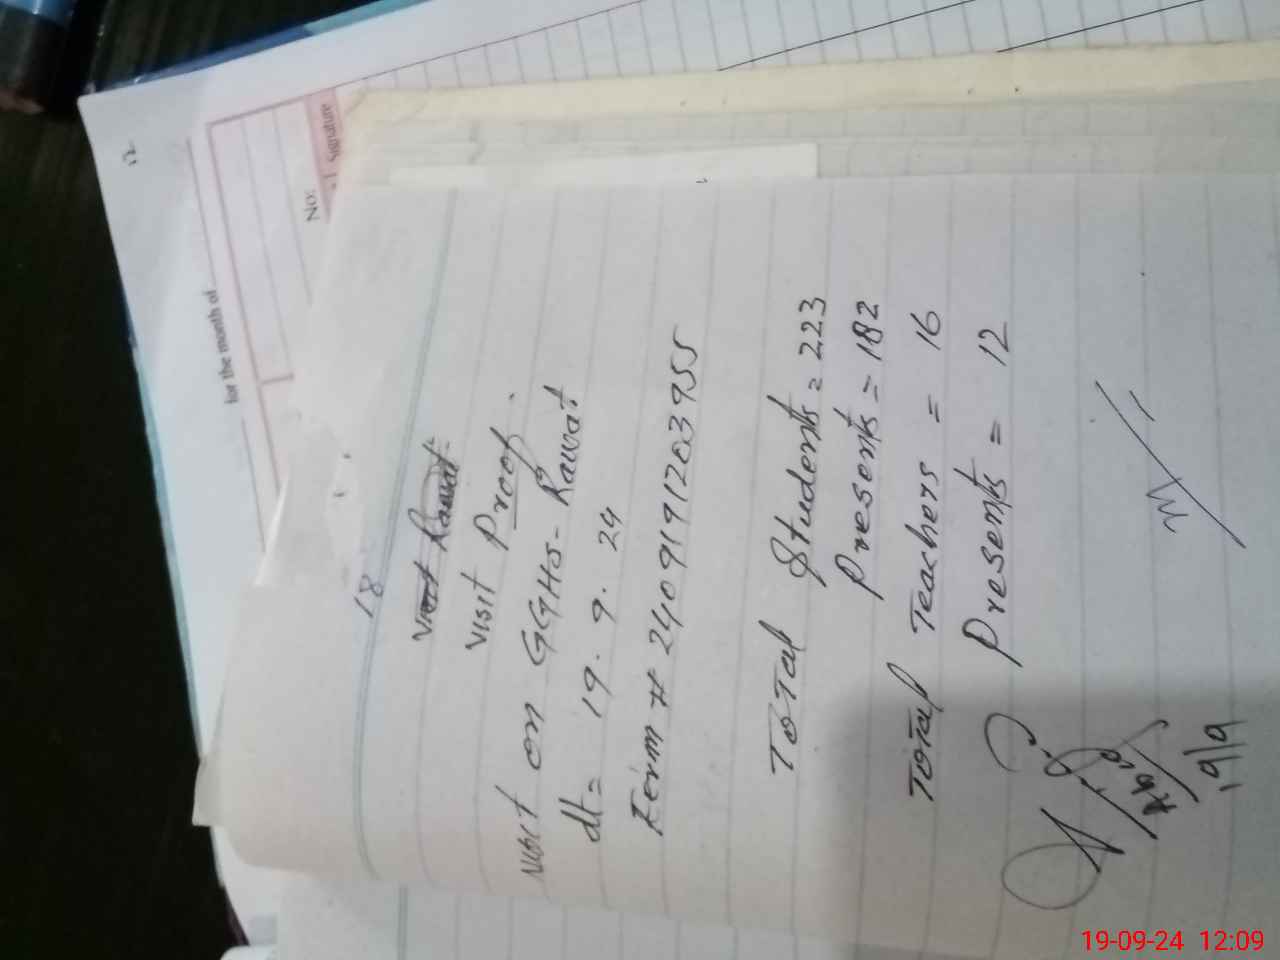 12
for the month of
No:
Signature
18
Visit Rawat
Visit Proof.
Visit on GGHS-Rawat
dt= 19.9.24
Form # 2409191203955
Total Students = 223
Presents = 182
Total Teachers = 16
Presents = 12
19/9
19-09-24 12:09